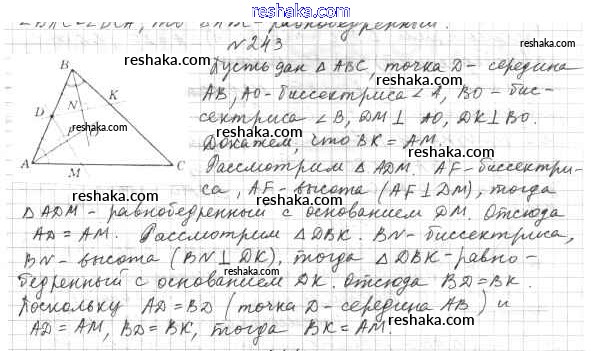 gdz.reshaka.com
reshaka.com
∠BAC = ∠BCA, то
равнобедренный.
№243
reshaka.com
Пусть дан △ABC, точка D - середина
reshaka.com
AB, AO - биссектриса ∠A, BO - бис-
сектриса ∠B, DM ⊥ AO, DK ⊥ BO.
reshaka.com
Докажем, что BK = AM.
Рассмотрим △ADM. AF - биссектри-
са, AF - высота (AF ⊥ DM), тогда
B
K
N
D
F
O
A
M
C
reshaka.com
△ADM - равнобедренный с основанием DM. Отсюда
AD = AM. Рассмотрим △DBK. BN - биссектриса,
reshaka.com
BN - высота (BN ⊥ DK), тогда △DBK - равно-
бедренный с основанием DK. Отсюда BD = BK.
Поскольку AD = BD (точка D - середина AB) и
AD = AM, BD = BK, тогда BK = AM.
reshaka.com